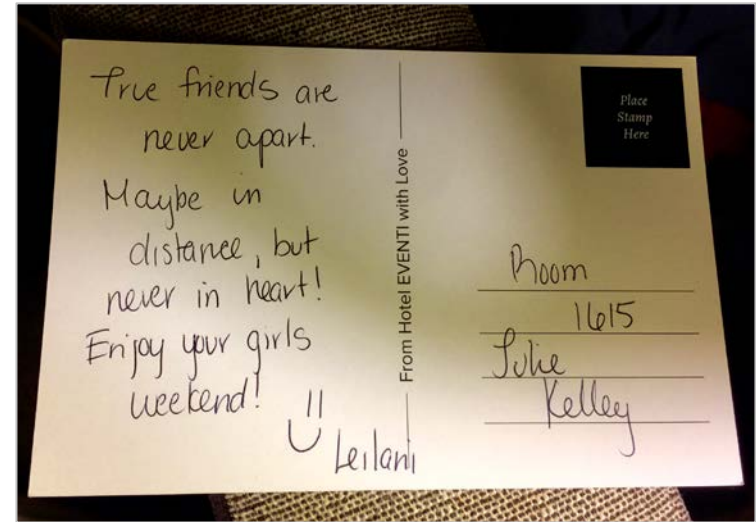 True friends are
never apart.
Maybe in
distance, but
never in heart!
Enjoy your girls
weekend!
Leilani
From Hotel EVENTI with Love
Place
Stamp
Here
Room
1615
Julie
Kelley